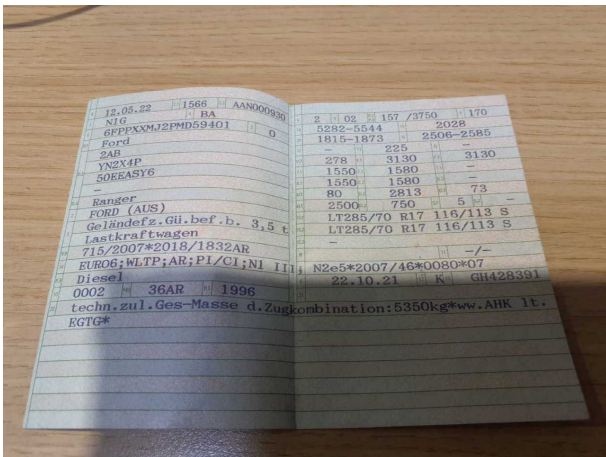 12.05.22 1566 AAN000930
NIG BA
6FPPXXMJ2PMD59401 0
Ford
2AB
YN2X4P
50EEASY6
–
Ranger
FORD (AUS)
Geländefz.Gü.bef.b. 3,5 t
Lastkraftwagen
715/2007*2018/1832AR
EURO6;WLTP;AR;PI/CI;N1 III
Diesel
0002 36AR 1996
2 02 157 /3750 170
5282–5544 2028
1815–1873 2506–2585
– 225 –
278 3130 3130
1550 1580 –
1550 1580 –
80 2813 73
2500 750 5 –
LT285/70 R17 116/113 S
LT285/70 R17 116/113 S
–
–/–
N2e5*2007/46*0080*07
22.10.21 K GH428391
techn.zul.Ges-Masse d.Zugkombination:5350kg*ww.AHK lt.
EGTG*